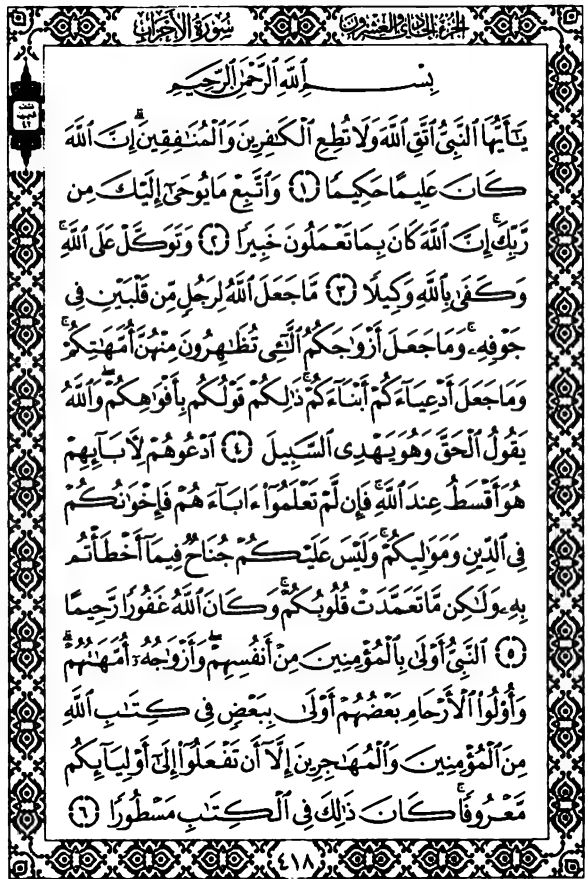 الجزء الحادي والعشرون سورة الأحزاب
بِسْمِ ٱللَّهِ ٱلرَّحْمَٰنِ ٱلرَّحِيمِ
يَٰٓأَيُّهَا ٱلنَّبِىُّ ٱتَّقِ ٱللَّهَ وَلَا تُطِعِ ٱلْكَٰفِرِينَ وَٱلْمُنَٰفِقِينَۗ إِنَّ ٱللَّهَ
كَانَ عَلِيمًا حَكِيمًا ١ وَٱتَّبِعْ مَا يُوحَىٰٓ إِلَيْكَ مِن
رَّبِّكَۚ إِنَّ ٱللَّهَ كَانَ بِمَا تَعْمَلُونَ خَبِيرًا ٢ وَتَوَكَّلْ عَلَى ٱللَّهِۚ
وَكَفَىٰ بِٱللَّهِ وَكِيلًا ٣ مَّا جَعَلَ ٱللَّهُ لِرَجُلٍ مِّن قَلْبَيْنِ فِى
جَوْفِهِۦۚ وَمَا جَعَلَ أَزْوَٰجَكُمُ ٱلَّٰٓـِٔى تُظَٰهِرُونَ مِنْهُنَّ أُمَّهَٰتِكُمْۚ
وَمَا جَعَلَ أَدْعِيَآءَكُمْ أَبْنَآءَكُمْۚ ذَٰلِكُمْ قَوْلُكُم بِأَفْوَٰهِكُمْۖ وَٱللَّهُ
يَقُولُ ٱلْحَقَّ وَهُوَ يَهْدِى ٱلسَّبِيلَ ٤ ٱدْعُوهُمْ لِأٓبَآئِهِمْ
هُوَ أَقْسَطُ عِندَ ٱللَّهِۚ فَإِن لَّمْ تَعْلَمُوٓا۟ ءَابَآءَهُمْ فَإِخْوَٰنُكُمْ
فِى ٱلدِّينِ وَمَوَٰلِيكُمْۚ وَلَيْسَ عَلَيْكُمْ جُنَاحٌ فِيمَآ أَخْطَأْتُم
بِهِۦ وَلَٰكِن مَّا تَعَمَّدَتْ قُلُوبُكُمْۚ وَكَانَ ٱللَّهُ غَفُورًا رَّحِيمًا
٥ ٱلنَّبِىُّ أَوْلَىٰ بِٱلْمُؤْمِنِينَ مِنْ أَنفُسِهِمْۖ وَأَزْوَٰجُهُۥٓ أُمَّهَٰتُهُمْۗ
وَأُو۟لُوا۟ ٱلْأَرْحَامِ بَعْضُهُمْ أَوْلَىٰ بِبَعْضٍ فِى كِتَٰبِ ٱللَّهِ
مِنَ ٱلْمُؤْمِنِينَ وَٱلْمُهَٰجِرِينَ إِلَّآ أَن تَفْعَلُوٓا۟ إِلَىٰٓ أَوْلِيَآئِكُم
مَّعْرُوفًاۚ كَانَ ذَٰلِكَ فِى ٱلْكِتَٰبِ مَسْطُورًا ٦
٤١٨